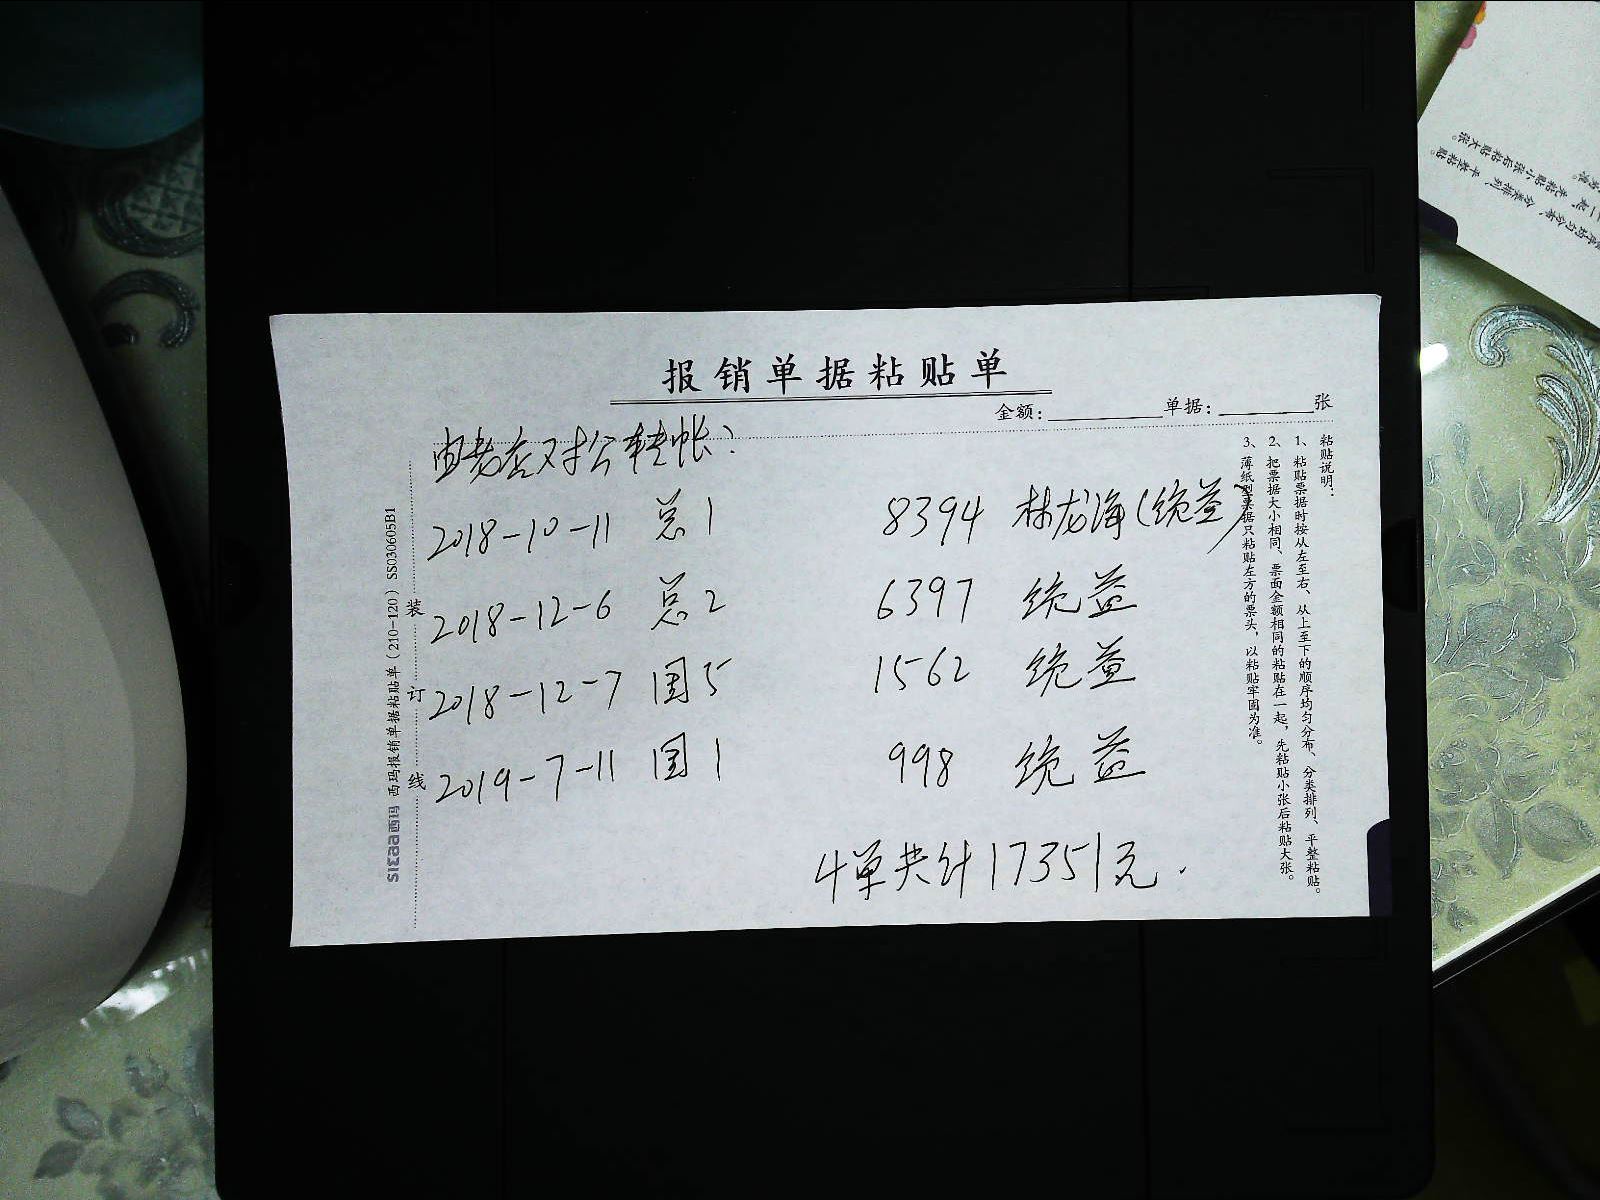 报销单据粘贴单
金额：
单据：
张
由老店对公转帐：
2018-10-11 总1 8394 林龙海(统益)
2018-12-6 总2 6397 统益
2018-12-7 国5 1562 统益
2019-7-11 国1 998 统益
4单共计17351元.
粘贴说明：
1、粘贴票据时按从左至右、从上至下的顺序均匀分布、分类排列、平整粘贴。
2、把票据大小相同、票面金额相同的粘贴在一起，先粘贴小张后粘贴大张。
3、薄纸型票据只粘贴左方的票头，以粘贴牢固为准。
装
订
线
西玛 西玛报销单据粘贴单（210-120） SS030605B1